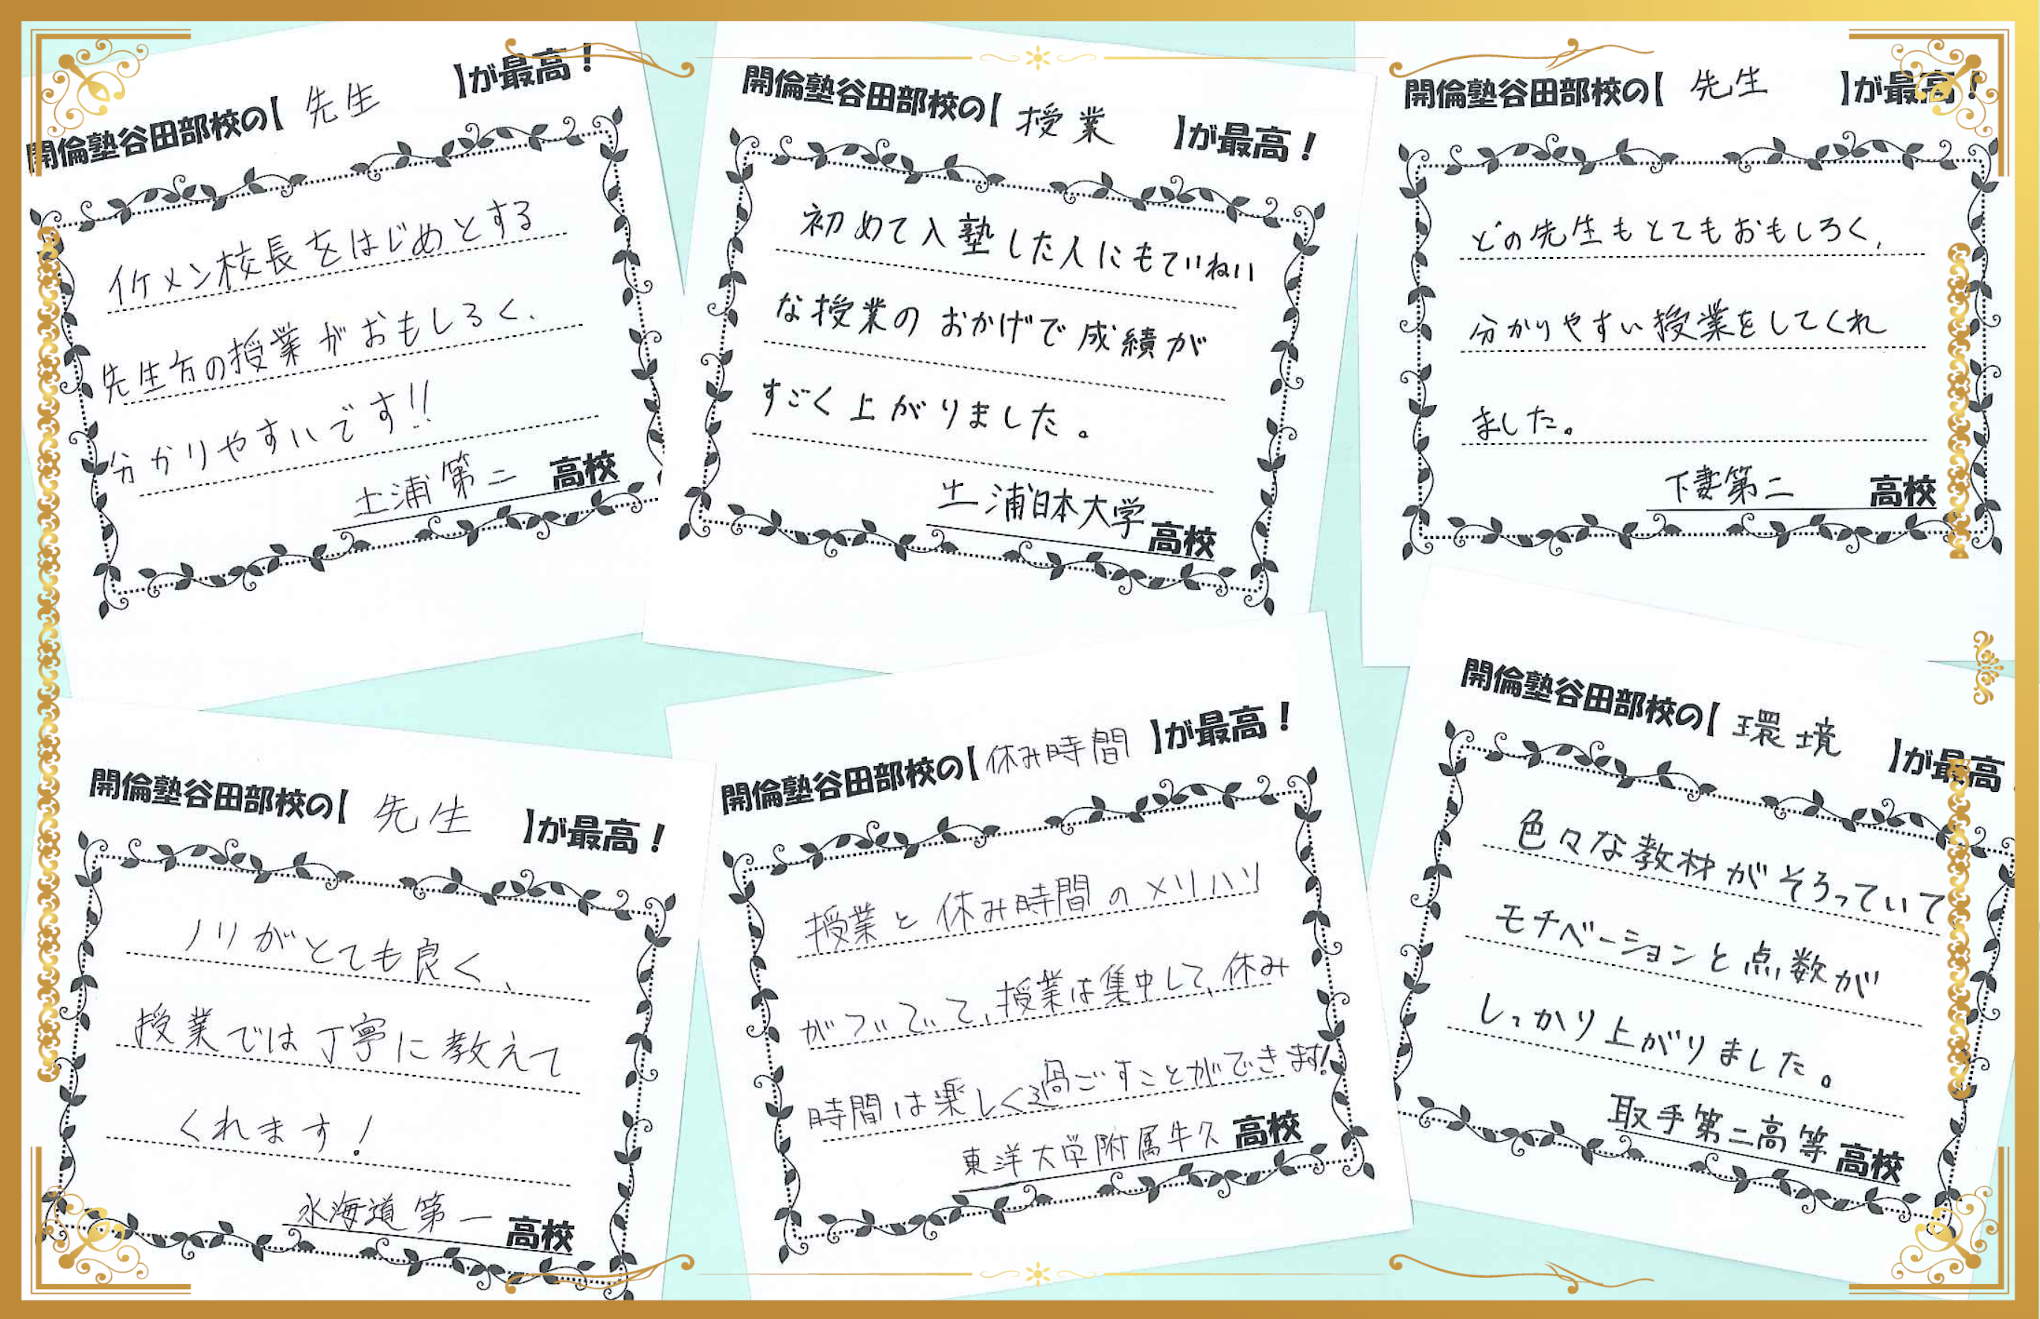 開倫塾谷田部校の【 先生 】が最高！
イケメン校長をはじめとする
先生方の授業がおもしろく、
分かりやすいです!!
土浦第二 高校
開倫塾谷田部校の【 授業 】が最高！
初めて入塾した人にもていねい
な授業のおかげで成績が
すごく上がりました。
土浦日本大学高校
開倫塾谷田部校の【 先生 】が最高！
どの先生もとてもおもしろく、
分かりやすい授業をしてくれ
ました。
下妻第二 高校
開倫塾谷田部校の【 先生 】が最高！
ノリがとても良く、
授業では丁寧に教えて
くれます！
水海道第一 高校
開倫塾谷田部校の【休み時間】が最高！
授業と休み時間のメリハリ
がついていて、授業は集中して、休み
時間は楽しく過ごすことができます!
東洋大学附属牛久 高校
開倫塾谷田部校の【 環境 】が最高
色々な教材がそろっていて
モチベーションと点数が
しっかり上がりました。
取手第二高等高校